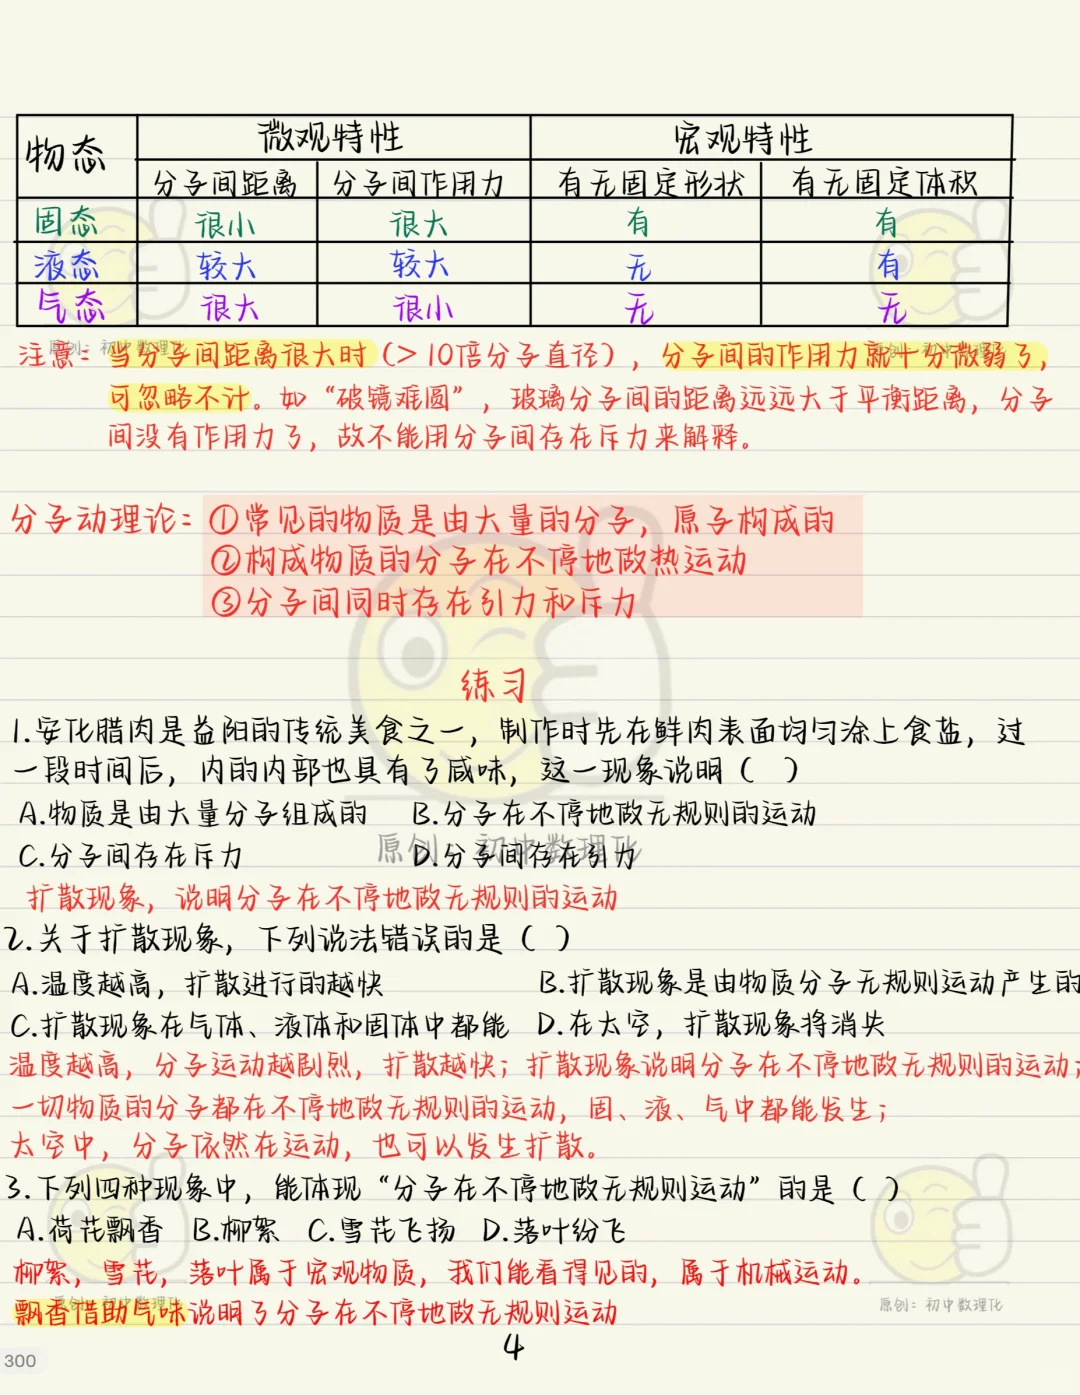 物态 微观特性 宏观特性
分子间距离 分子间作用力 有无固定形状 有无固定体积
固态 很小 很大 有 有
液态 较大 较大 无 有
气态 很大 很小 无 无
注意：当分子间距离很大时（>10倍分子直径），分子间的作用力就十分微弱了，
可忽略不计。如“破镜难圆”，玻璃分子间的距离远远大于平衡距离，分子
间没有作用力了，故不能用分子间存在斥力来解释。
分子动理论：①常见的物质是由大量的分子，原子构成的
②构成物质的分子在不停地做热运动
③分子间同时存在引力和斥力
练习
1.安化腊肉是益阳的传统美食之一，制作时先在鲜肉表面均匀涂上食盐，过
一段时间后，内的内部也具有了咸味，这一现象说明（ ）
A.物质是由大量分子组成的 B.分子在不停地做无规则的运动
C.分子间存在斥力 D.分子间存在引力
扩散现象，说明分子在不停地做无规则的运动
2.关于扩散现象，下列说法错误的是（ ）
A.温度越高，扩散进行的越快 B.扩散现象是由物质分子无规则运动产生的
C.扩散现象在气体、液体和固体中都能 D.在太空，扩散现象将消失
温度越高，分子运动越剧烈，扩散越快；扩散现象说明分子在不停地做无规则的运动；
一切物质的分子都在不停地做无规则的运动，固、液、气中都能发生；
太空中，分子依然在运动，也可以发生扩散。
3.下列四种现象中，能体现“分子在不停地做无规则运动”的是（ ）
A.荷花飘香 B.柳絮 C.雪花飞扬 D.落叶纷飞
柳絮，雪花，落叶属于宏观物质，我们能看得见的，属于机械运动。
飘香借助气味说明了分子在不停地做无规则运动
4
300
原创：初中数理化
原创：初中数理化
原创：初中数理化
原创：初中数理化
原创：初中数理化